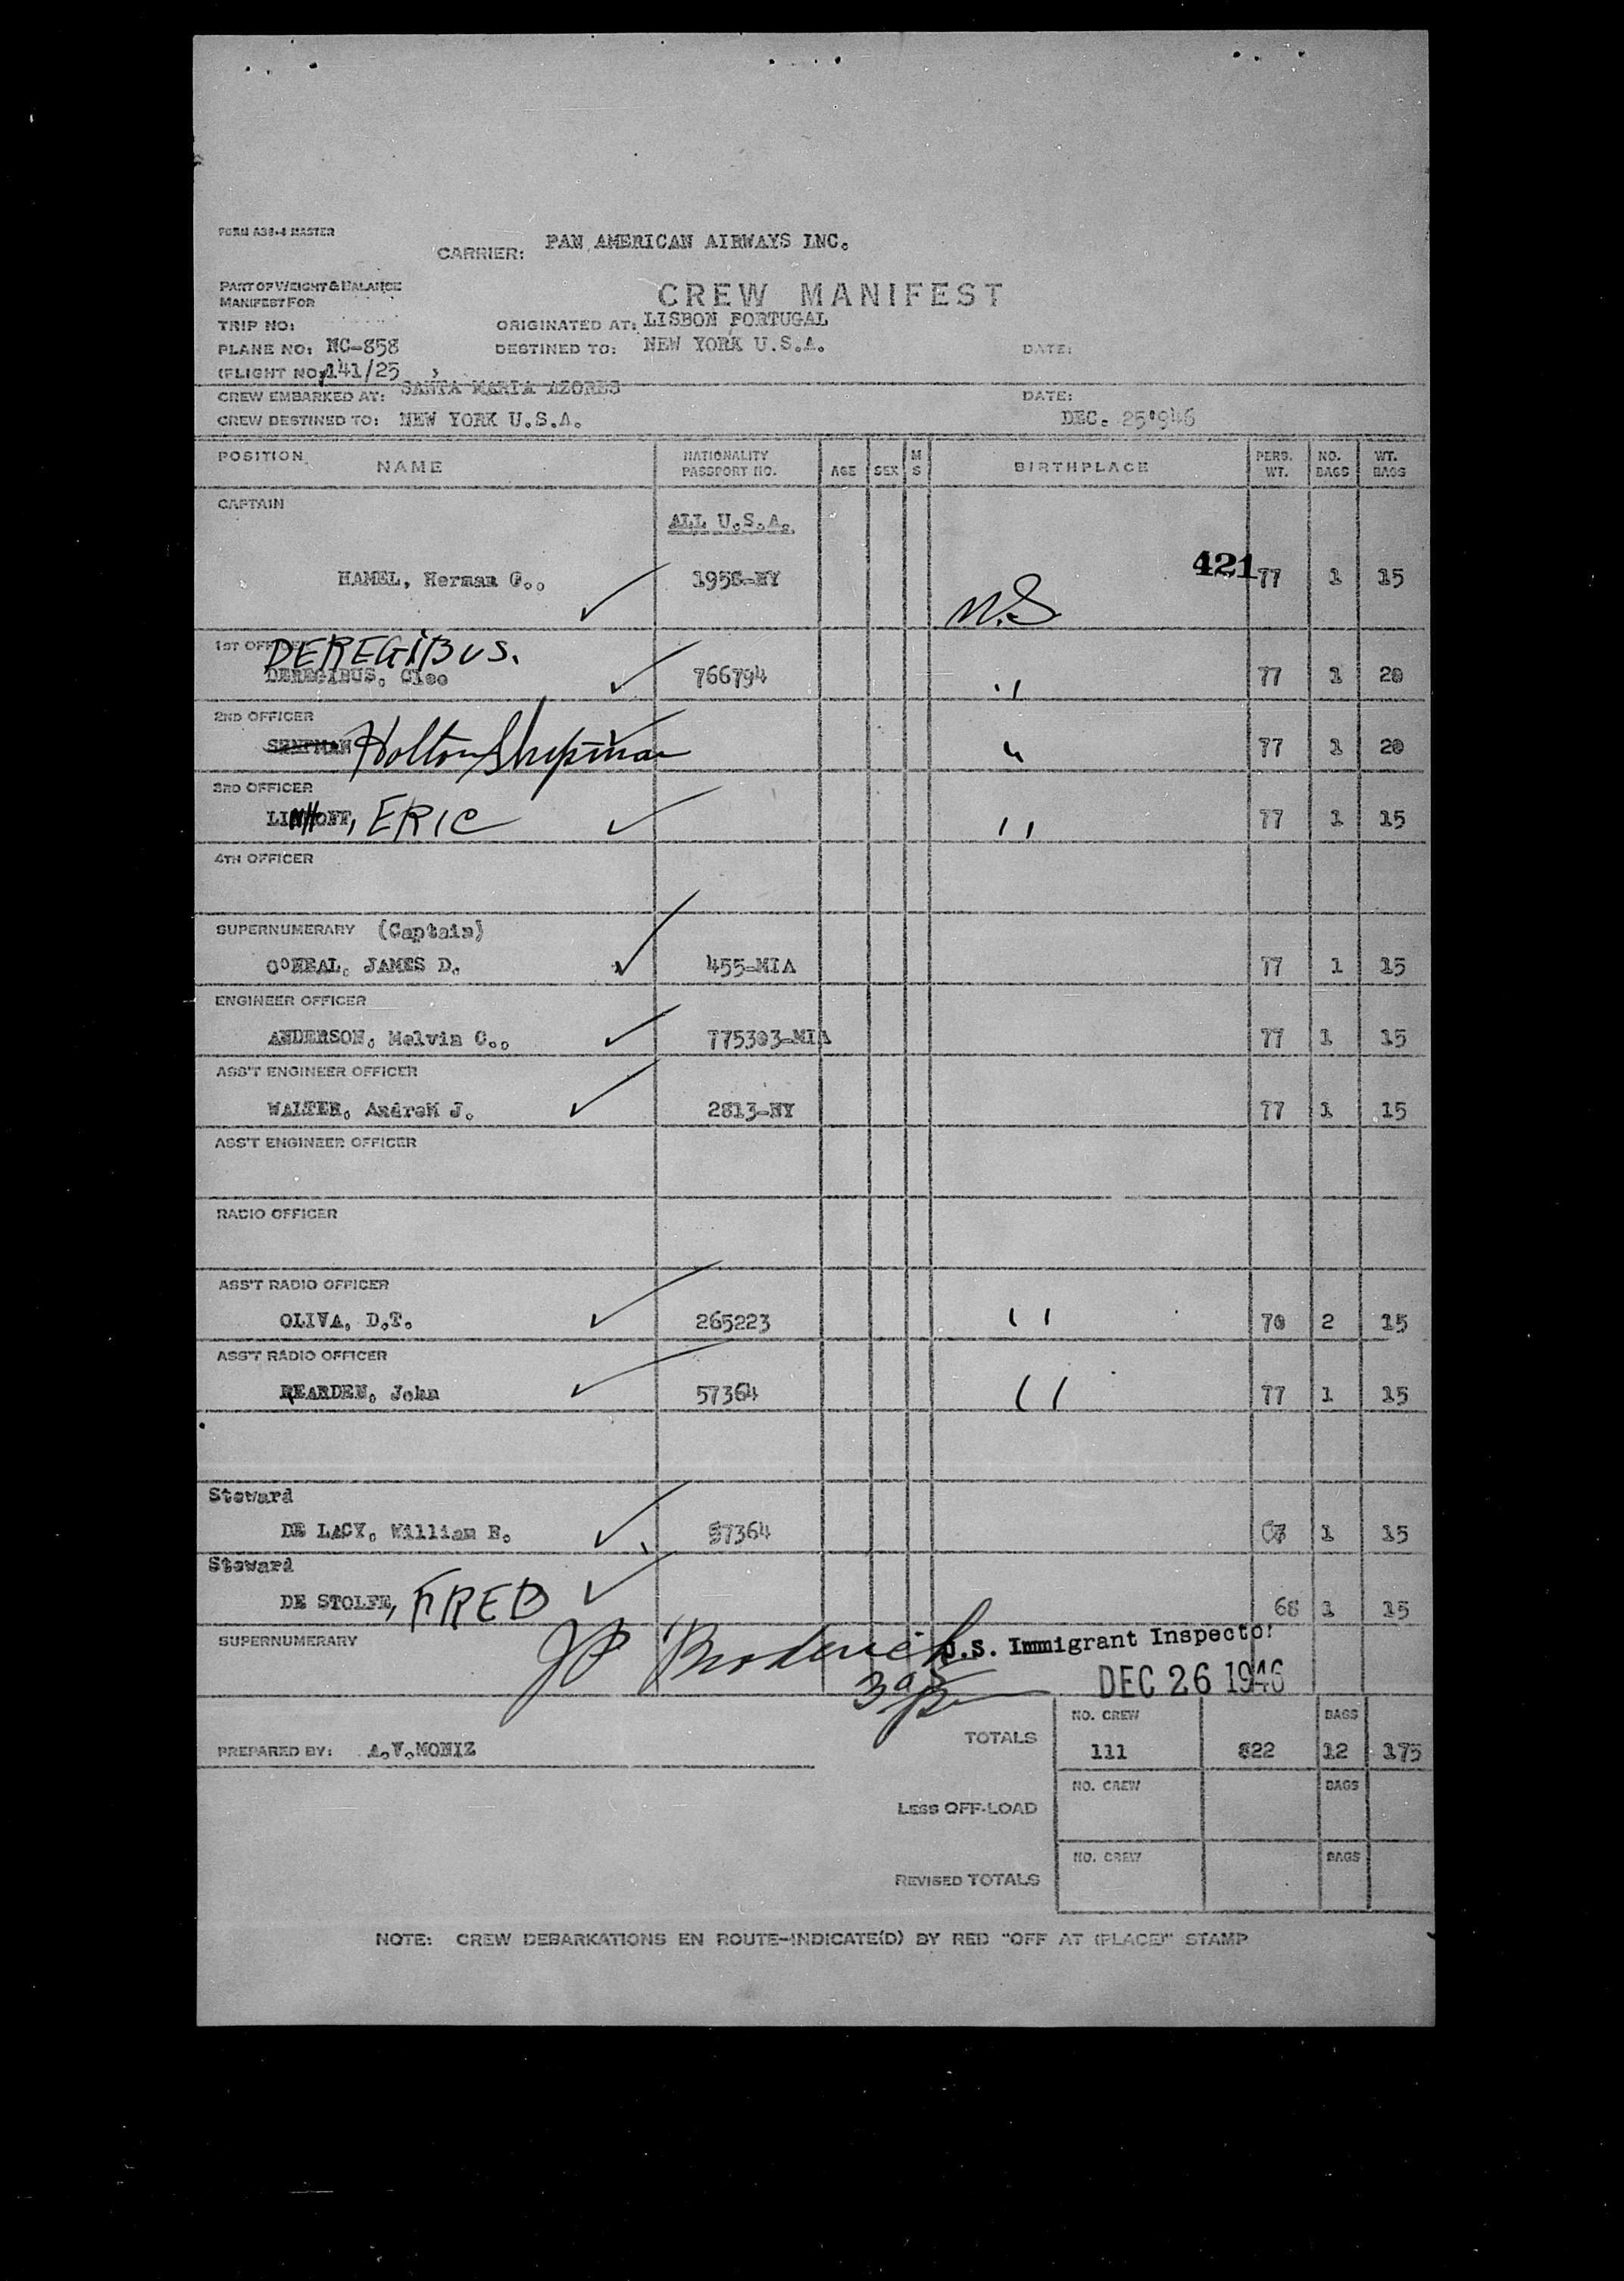 FORM A38-4 MASTER
CARRIER: PAN AMERICAN AIRWAYS INC.
PART OF WEIGHT & BALANCE
MANIFEST FOR
CREW MANIFEST
TRIP NO:
ORIGINATED AT: LISBON PORTUGAL
PLANE NO: NC-858
DESTINED TO: NEW YORK U.S.A.
DATE:
(FLIGHT NO) 141/25
CREW EMBARKED AT: SANTA MARIA AZORES
DATE:
CREW DESTINED TO: NEW YORK U.S.A.
DEC. 25'946
POSITION NAME NATIONALITY PASSPORT NO. AGE SEX M S BIRTHPLACE PERS. WT. NO. BAGS WT. BAGS
CAPTAIN
ALL U.S.A.
421
HAMEL, Herman G., 1958-NY 77 1 15
1ST OFFICER
DEREGIBUS.
DEREGIBUS, Cleo 766794 " 77 1 20
2ND OFFICER
SHEPMAN Holton Shepman " 77 1 20
3RD OFFICER
LINHOFF, ERIC " 77 1 15
4TH OFFICER
SUPERNUMERARY (Captain)
O'NEAL, JAMES D. 455-MIA 77 1 15
ENGINEER OFFICER
ANDERSON, Melvin C., 775303-MIA 77 1 15
ASS'T ENGINEER OFFICER
WALTER, AndreW J. 2813-NY 77 1 15
ASS'T ENGINEER OFFICER
RADIO OFFICER
ASS'T RADIO OFFICER
OLIVA, D.T. 265223 " 70 2 15
ASS'T RADIO OFFICER
REARDEN, John 57364 " 77 1 15
Steward
DE LACY, William E. 57364 1 15
Steward
DE STOLFE, FRED 68 1 15
SUPERNUMERARY
JP Broderick
U.S. Immigrant Inspector
DEC 26 1946
TOTALS NO. CREW 111 822 BAGS 12 175
PREPARED BY: A.V.MONIZ
LESS OFF-LOAD NO. CREW BAGS
REVISED TOTALS NO. CREW BAGS
NOTE: CREW DEBARKATIONS EN ROUTE-INDICATE(D) BY RED "OFF AT (PLACE)" STAMP